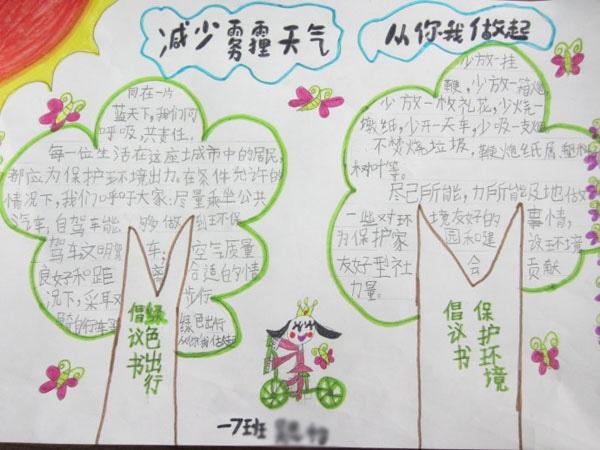 减少雾霾天气
从你我做起
同在一片
蓝天下,我们同
呼吸,共责任.
每一位生活在这座城市中的居民,
都应为保护环境出力.在条件允许的
情况下,我们呼吁大家:尽量乘坐公共
汽车,自驾车能够做到环保
驾车文明驾车;空气质量
良好和距离合适的情
况下,采取步行
骑自行车等
绿色出行
从你我做起
绿色出行
倡议书
少放一挂
鞭,少放一箱炮,
少放一枚礼花,少烧一
墩纸,少开一天车,少吸一支烟
不焚烧垃圾,鞭炮纸屑、塑料
树叶等。
尽己所能,力所能及地做
一些对环境友好的事情,
为保护家园和建设环境
友好型社会贡献
力量。
保护环境
倡议书
一7班